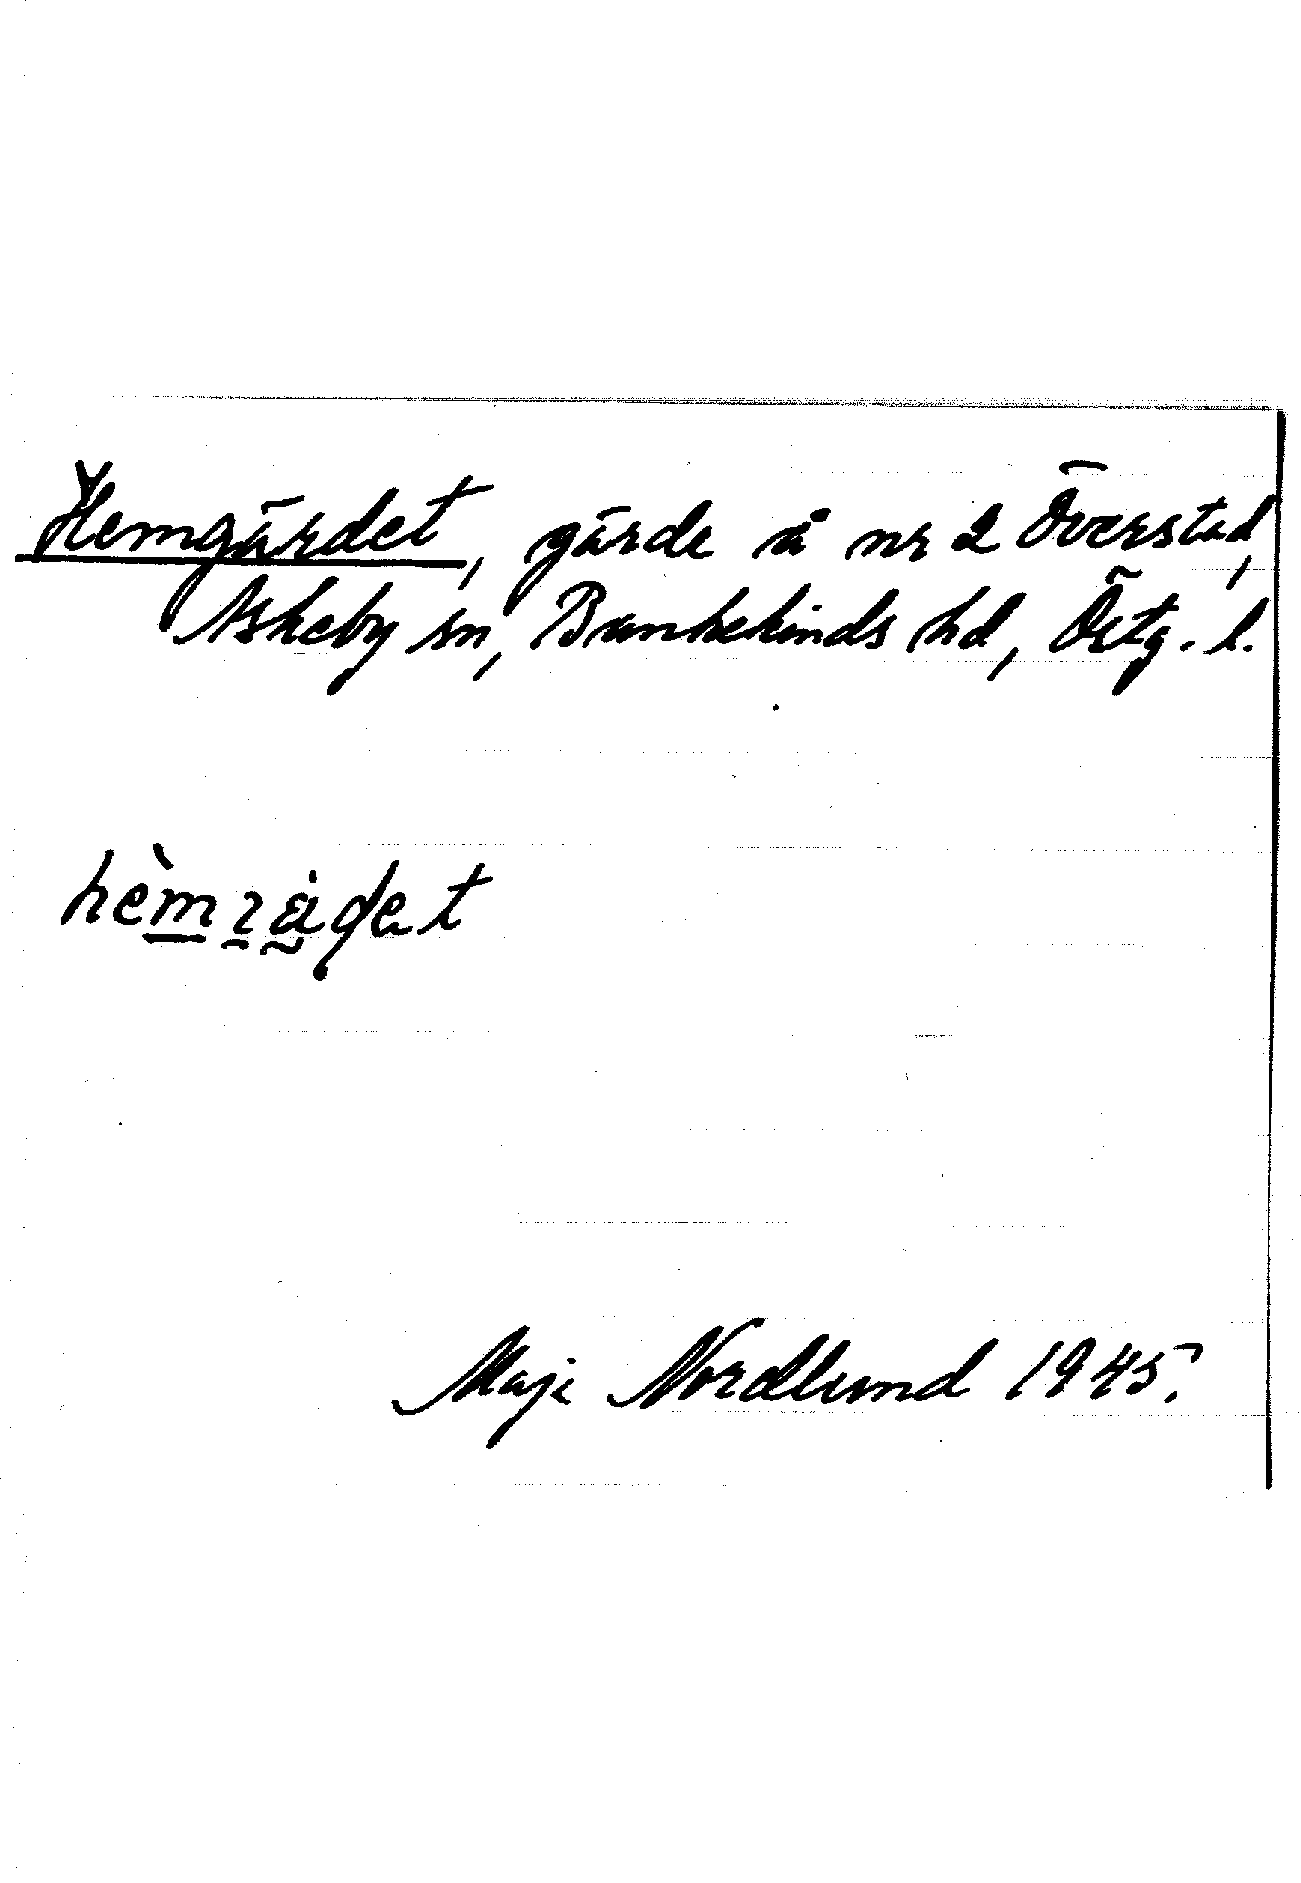 Hemgärdet, gärde å nr 2 Överstad,
Askeby sn, Bankekinds hd, Östg. l.
Maja Nordlund 1945.